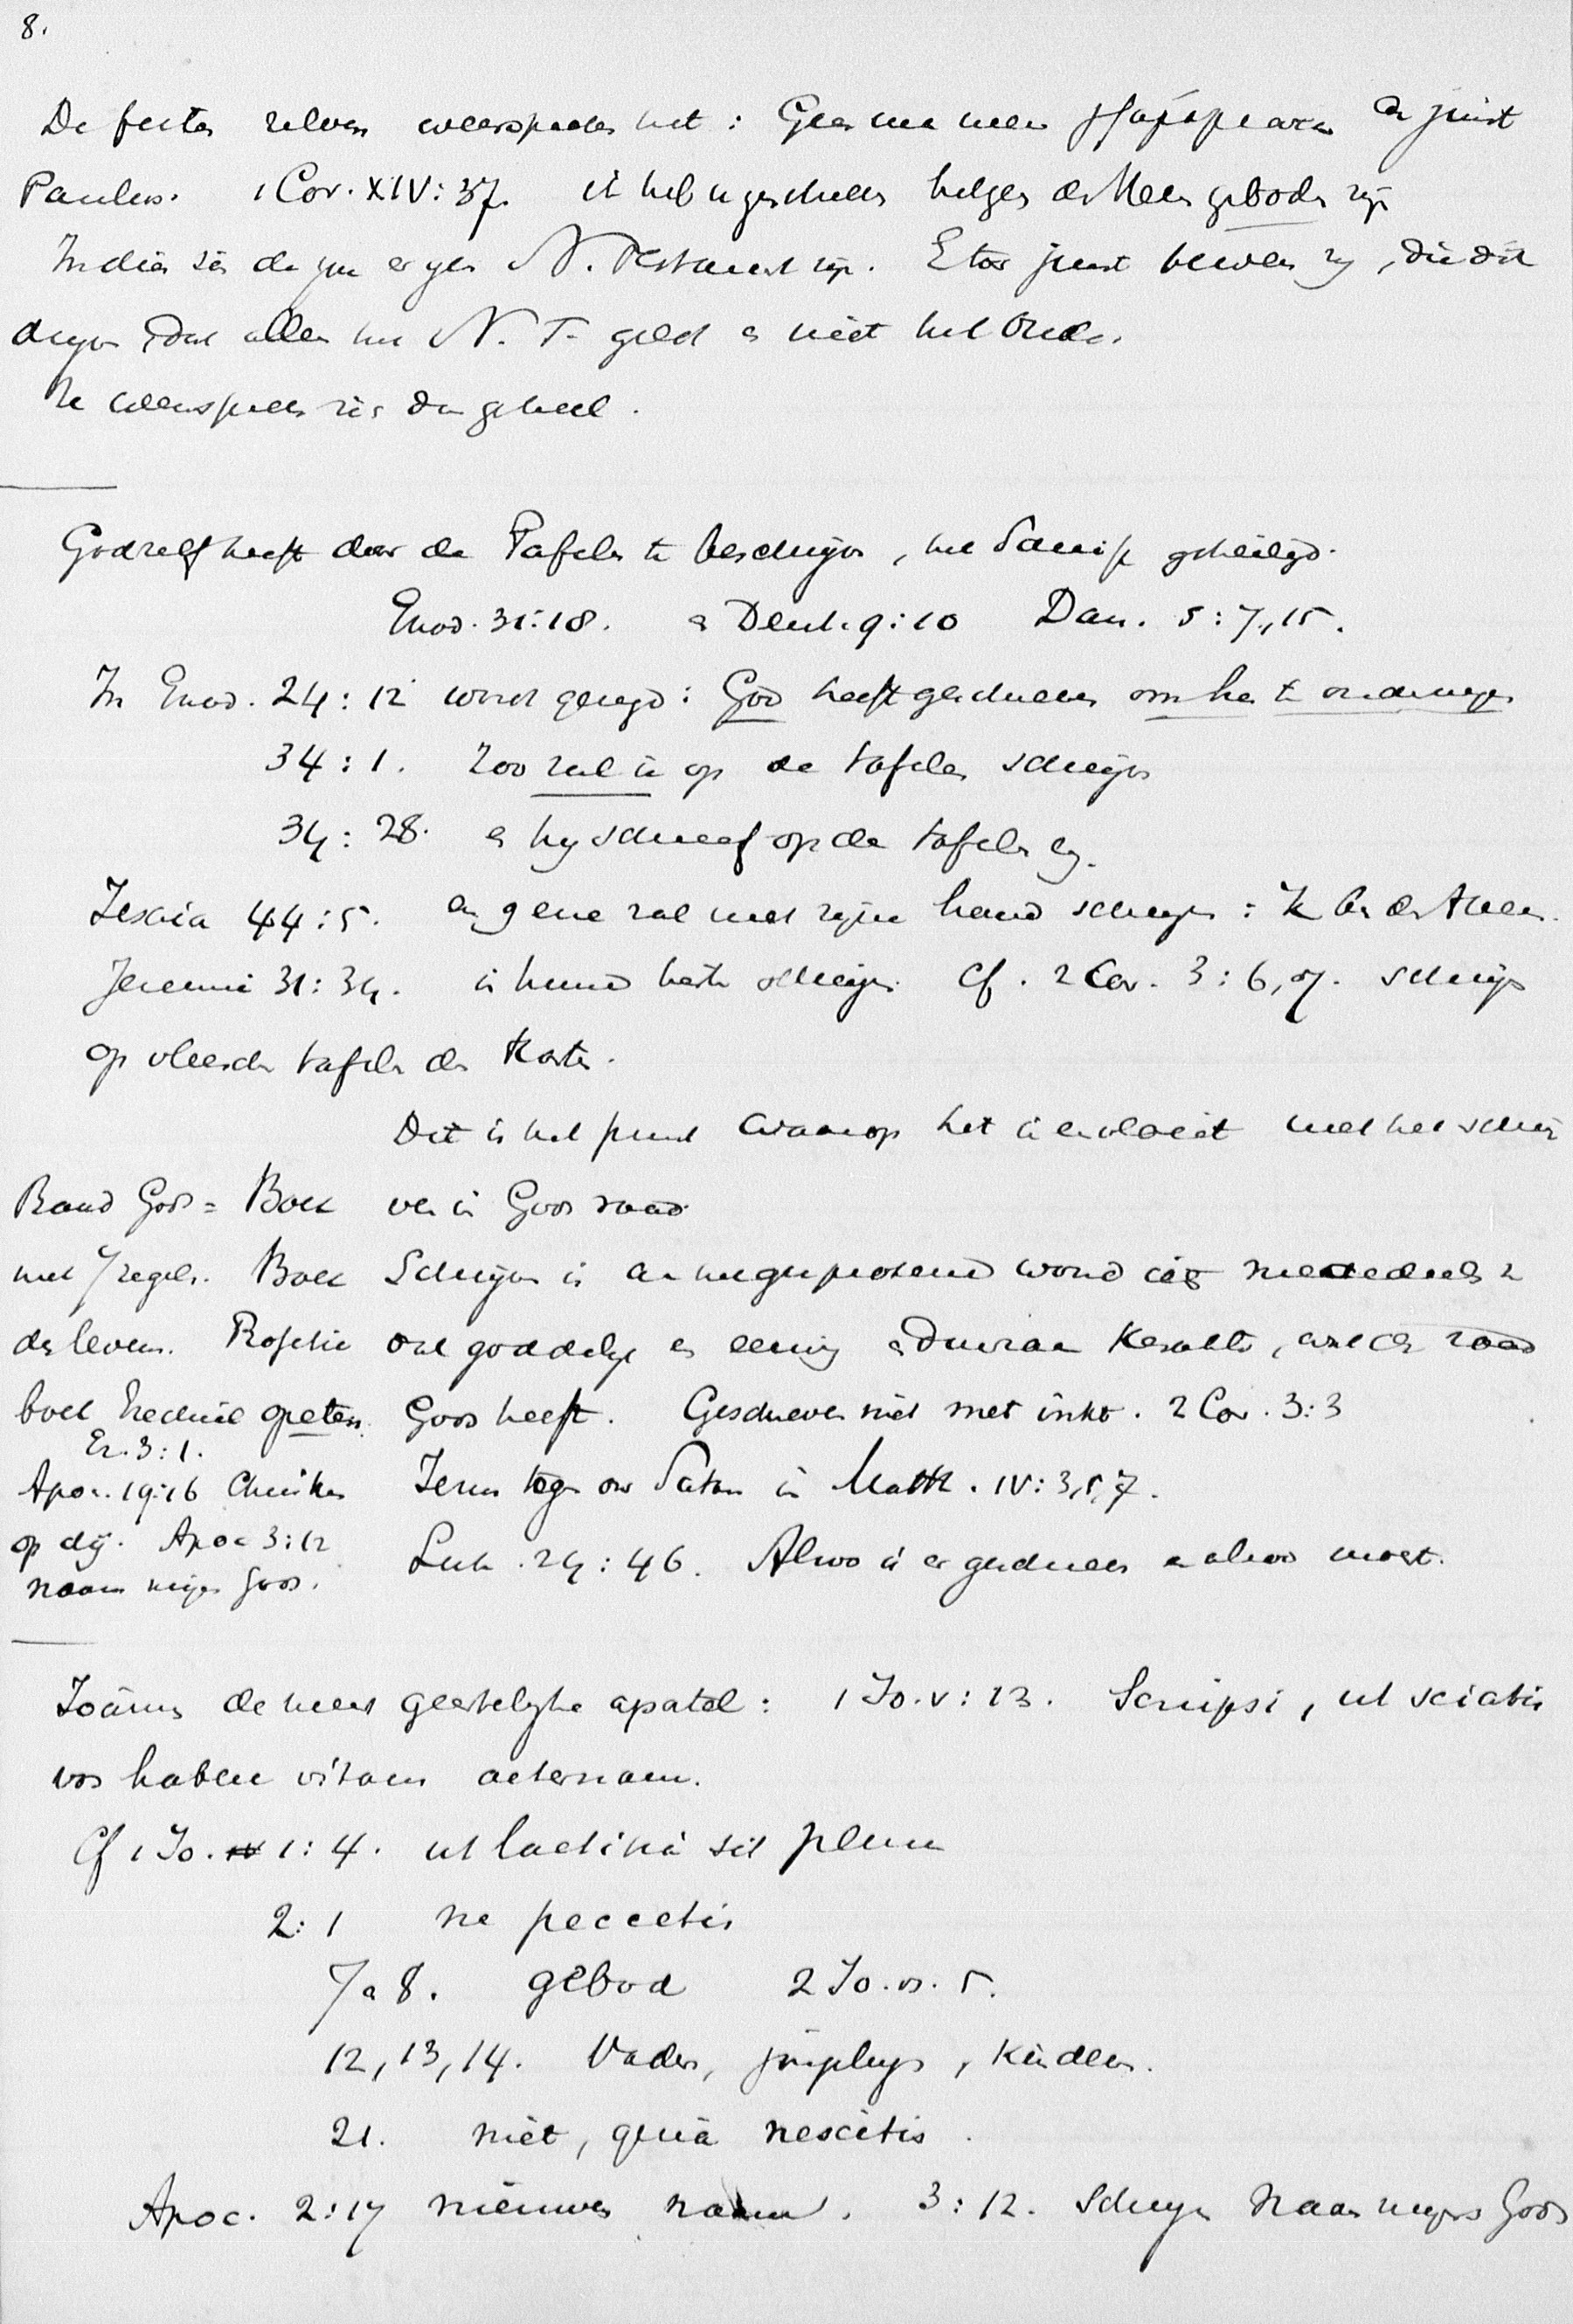 8.
De feiten zelven weerspreken het: Geen meer en juist
Paulus. 1 Cor. XIV: 37. ik heb u geschreven hetgeen des Heeren geboden zijn
Indien zou er geen N. Testament zijn. En toch juist beweren zij, die dit
drijven, dat alleen het N. T. geldt en niet het Oude.
Ze weerspreken zich dus geheel.
God zelf heeft door de Tafelen te beschrijven, het Schrift geheiligd.
Exod. 31:18. en Deut. 9:10 Dan. 5:7, 15.
In Exod. 24:12 wordt gezegd: God heeft geschreven om hen te onderwijzen
34:1. Zoo zal ik op de tafelen schrijven
34:28. en hij schreef op de tafelen enz.
Jesaia 44:5. en gene zal met zijne hand schrijven: Ik ben des Heeren.
Jeremia 31:34. in hun hart schrijven. Cf. 2 Cor. 3:6, 7. schrijven
op vleeschen tafelen des harten.
Dit is het punt waarop het ineenvloeit met het schrij
ven in Gods raad.
Raad Gods = Boek
met 7 zegels. Boek
des levens. Profetie
boek Ezechiel gegeten.
Ez. 3:1.
Apoc. 19:16 Christus
op dij. Apoc 3:12
naam mijns Gods.
Schrijven is aan het gesproken woord iets mededeelen
dat goddelijk en eeuwig en duurzaam karakter, welk de raad
Gods heeft. Geschreven niet met inkt. 2 Cor. 3:3
Jezus tegenover Satan in Matth. IV: 3, 5, 7.
Luk. 24:46. Alzoo is er geschreven en alzoo moest.
Joannes de meest geestelijke apostel: 1 Jo. V: 13. Scripsi, ut sciatis
vos habere vitam aeternam.
Cf 1 Jo. 1:4. ut laetitia sit plena
2:1 ne peccetis
7 a 8. gebod 2 Jo. vs. 5.
12, 13, 14. Vaders, jongelingen, kinderen.
21. niet, quia nescitis.
Apoc. 2:17 nieuwen naam. 3:12. Schrijven Naam mijns Gods